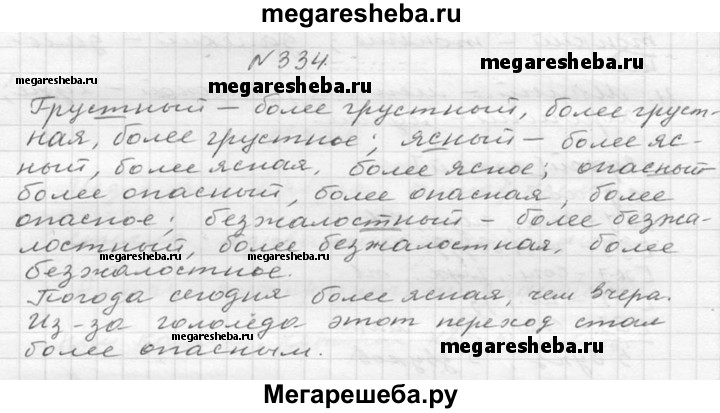 megaresheba.ru
N 334.
megaresheba.ru
megaresheba.ru
Грустный — более грустный, более груст-
ная, более грустное; ясный — более яс-
ный, более ясная, более ясное; опасный
более опасный, более опасная, более
опасное; безжалостный — более безжа-
лостный, более безжалостная, более
megaresheba.ru
megaresheba.ru
безжалостное.
Погода сегодня более ясная, чем вчера.
Из-за гололёда этот переход стал
более опасным.
megaresheba.ru
Мегарешеба.ру